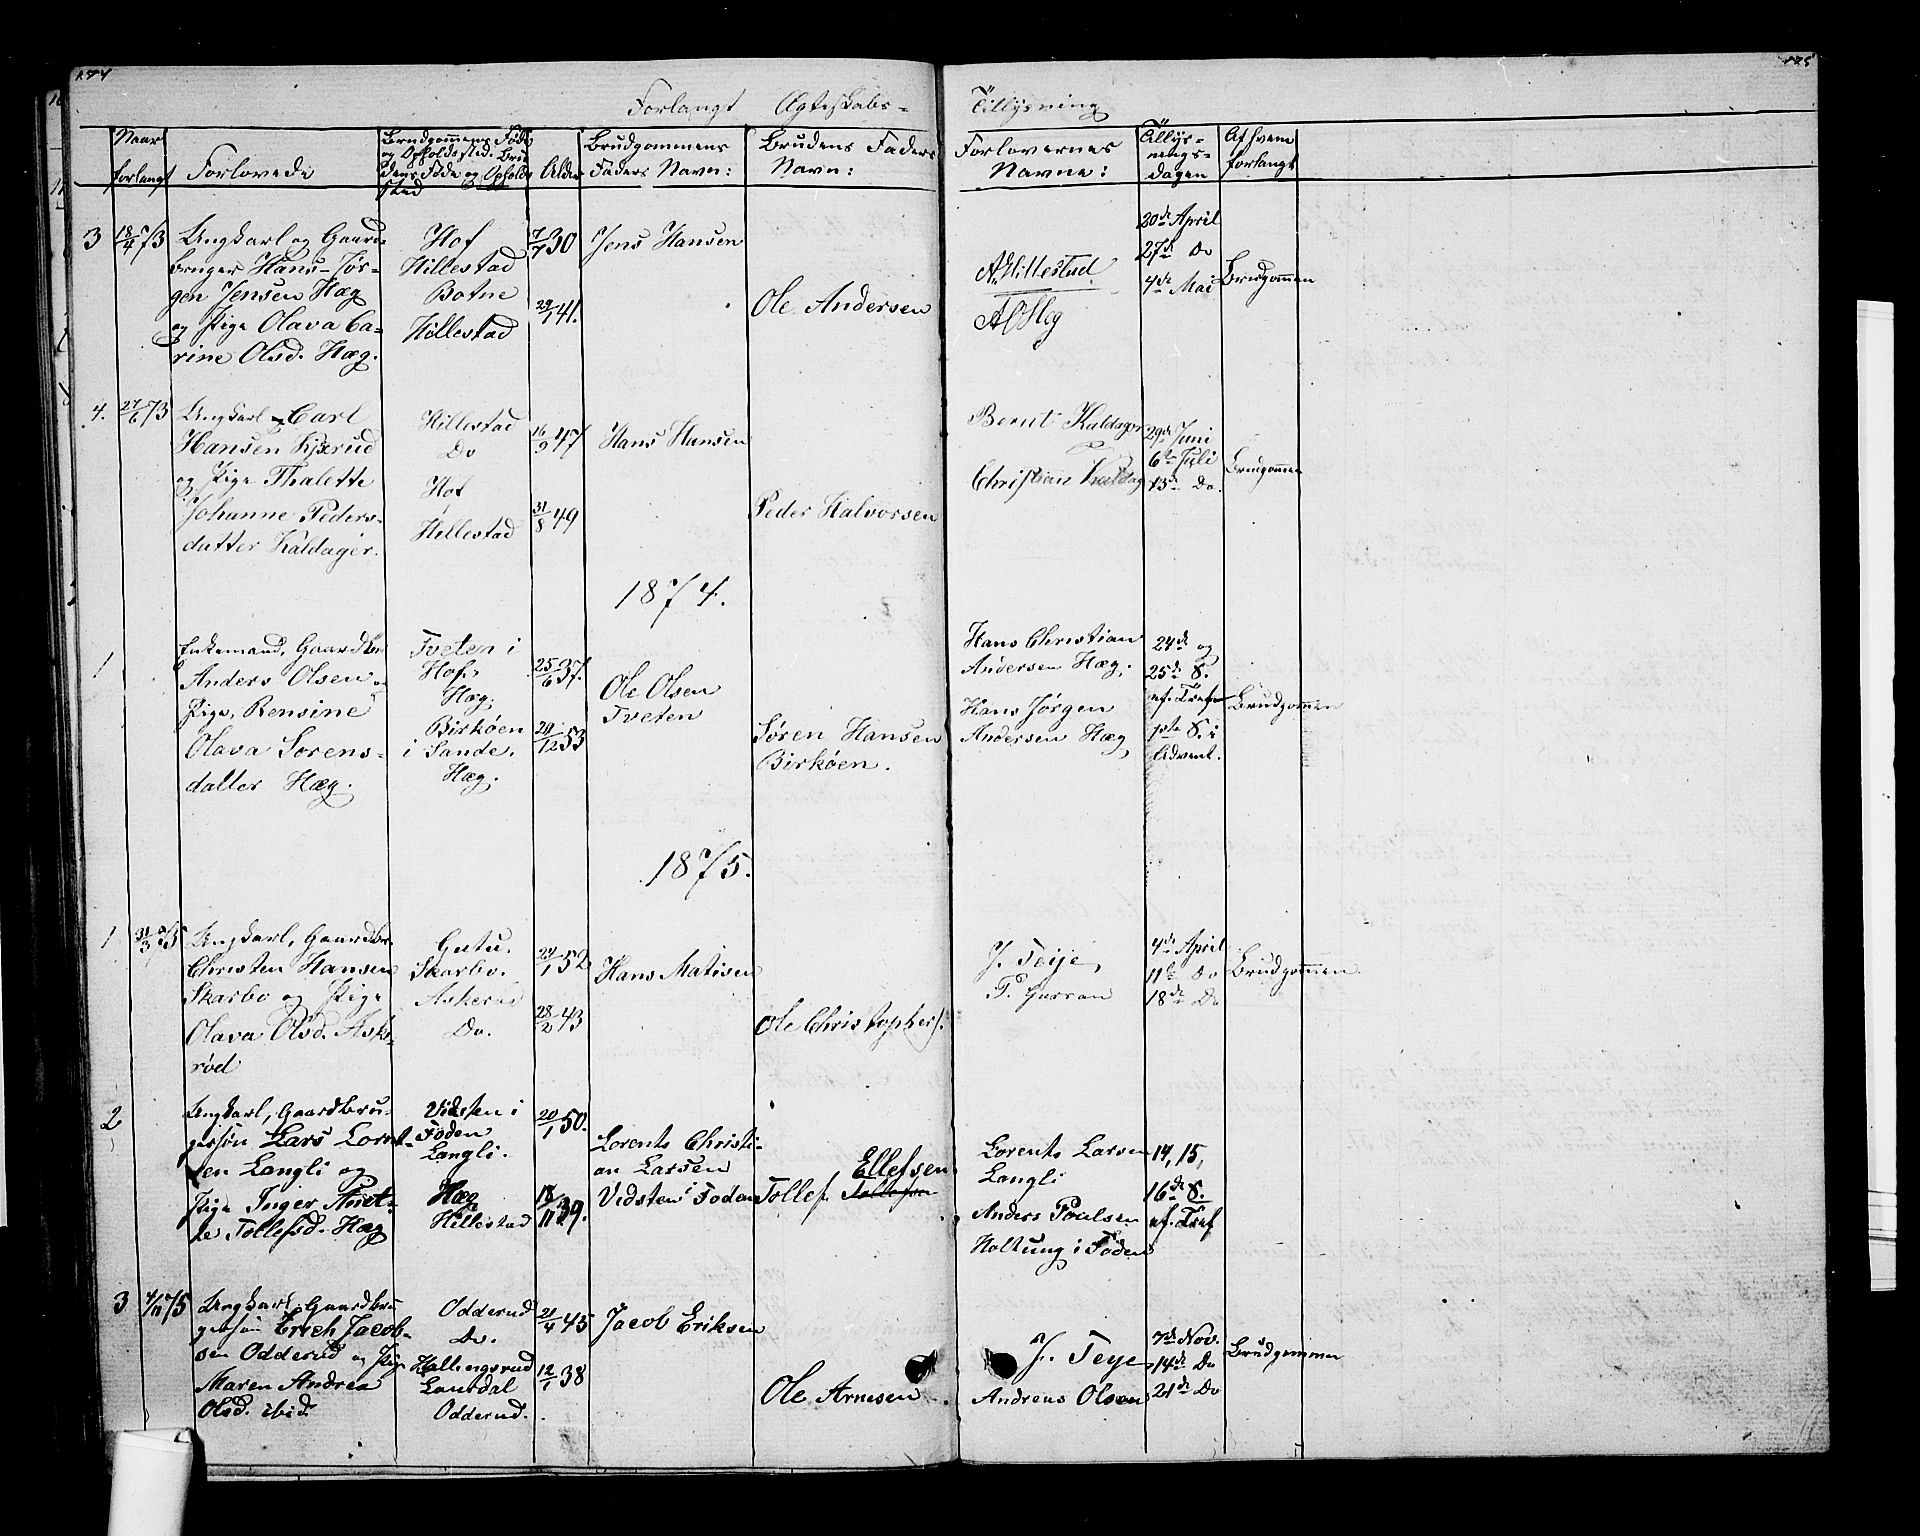 174
175
Forlangt Ægteskabs-
Tillysning
Naar
forlangt
Forlovede
Brudgommens Føde
og Opholdssted. Bru
dens Føde og Opholds
sted
Alder
Brudgommens
Faders Navn:
Brudens Faders
Navn:
Forlovernes
Navne:
Tillys-
nings-
dagen
Af hvem
forlangt
3
18/4 73
Ungkarl og Gaard-
bruger Hans Jør-
gen Jensen Hæg
og Pige Olava Ca-
rine Olsd. Hæg.
Hof
Hillestad
Botne
Hillestad
7/7 30
29/1 41.
Jens Hansen
Ole Andersen
A. Hillestad
20de April
27de Do
4de Mai
Brudgommen
4.
27/6 73
Ungkarl Carl
Hansen Kjærud
og Pige Thalette
Johanne Peders-
datter Kaldager.
Hillestad
Do
Hof
Hillestad
16/9 47
31/8 49
Hans Hansen
Peder Halvorsen
Bernt Kaldager
Christian Kaldag
29de Juni
6te Juli
13de Do.
Brudgommen
1874.
1
Enkemand, Gaardbr
Anders Olsen og
Pige, Bensine
Olava Sørens-
datter Hæg.
Tveten i
Hof,
Hæg,
Birkøen
i Sande,
Hæg.
25/6 37.
29/12 53
Ole Olsen
Tveten
Søren Hansen
Birkøen.
Hans Christian
Andersen Hæg.
Hans Jørgen
Andersen Hæg,
24de og
25de S.
ef. Tref
1ste S. i
Advent.
Brudgommen
1875.
1
31/3 75
Ungkarl, Gaardbr.
Christen Hansen
Skarbo og Pige
Olava Olsd. Aske-
rød
Gutu.
Skarbo.
Askerød
Do.
24/1 52
28/2 43
Hans Matisen
Ole Christophers.
J. Teije,
P. Gurran
4de April
11te Do
18de Do
Brudgommen.
2
Ungkarl, Gaardbru-
gersøn Lars Lornt-
sen Langli og
Pige Inger Anet-
te Tollefsd. Hæg
Vidsten i
Foden
Langli.
Hæg
Hillestad
20/1 50.
18/11 39.
Lorents Christi-
an Larsen
Vidsten i Foden
Ellefsen
Tollef Tollefsen
Lorents Larsen
Langli
Anders Poulsen
Holtung i Foden
14, 15,
16de S.
ef. Tref
3
4/11 75
Ungkarl, Gaardbru
gersøn Erich Jacob-
sen Odderud og Pige
Maren Andrea
Olsd. ibid.
Odderud
Do.
Hallingsrud
Laurdal
Odderud.
21/4 45
12/1 38
Jacob Eriksen
Ole Arnesen
J. Teye
Andreas Olsen
7de Nov.
14de Do
21de Do
Brudgommen